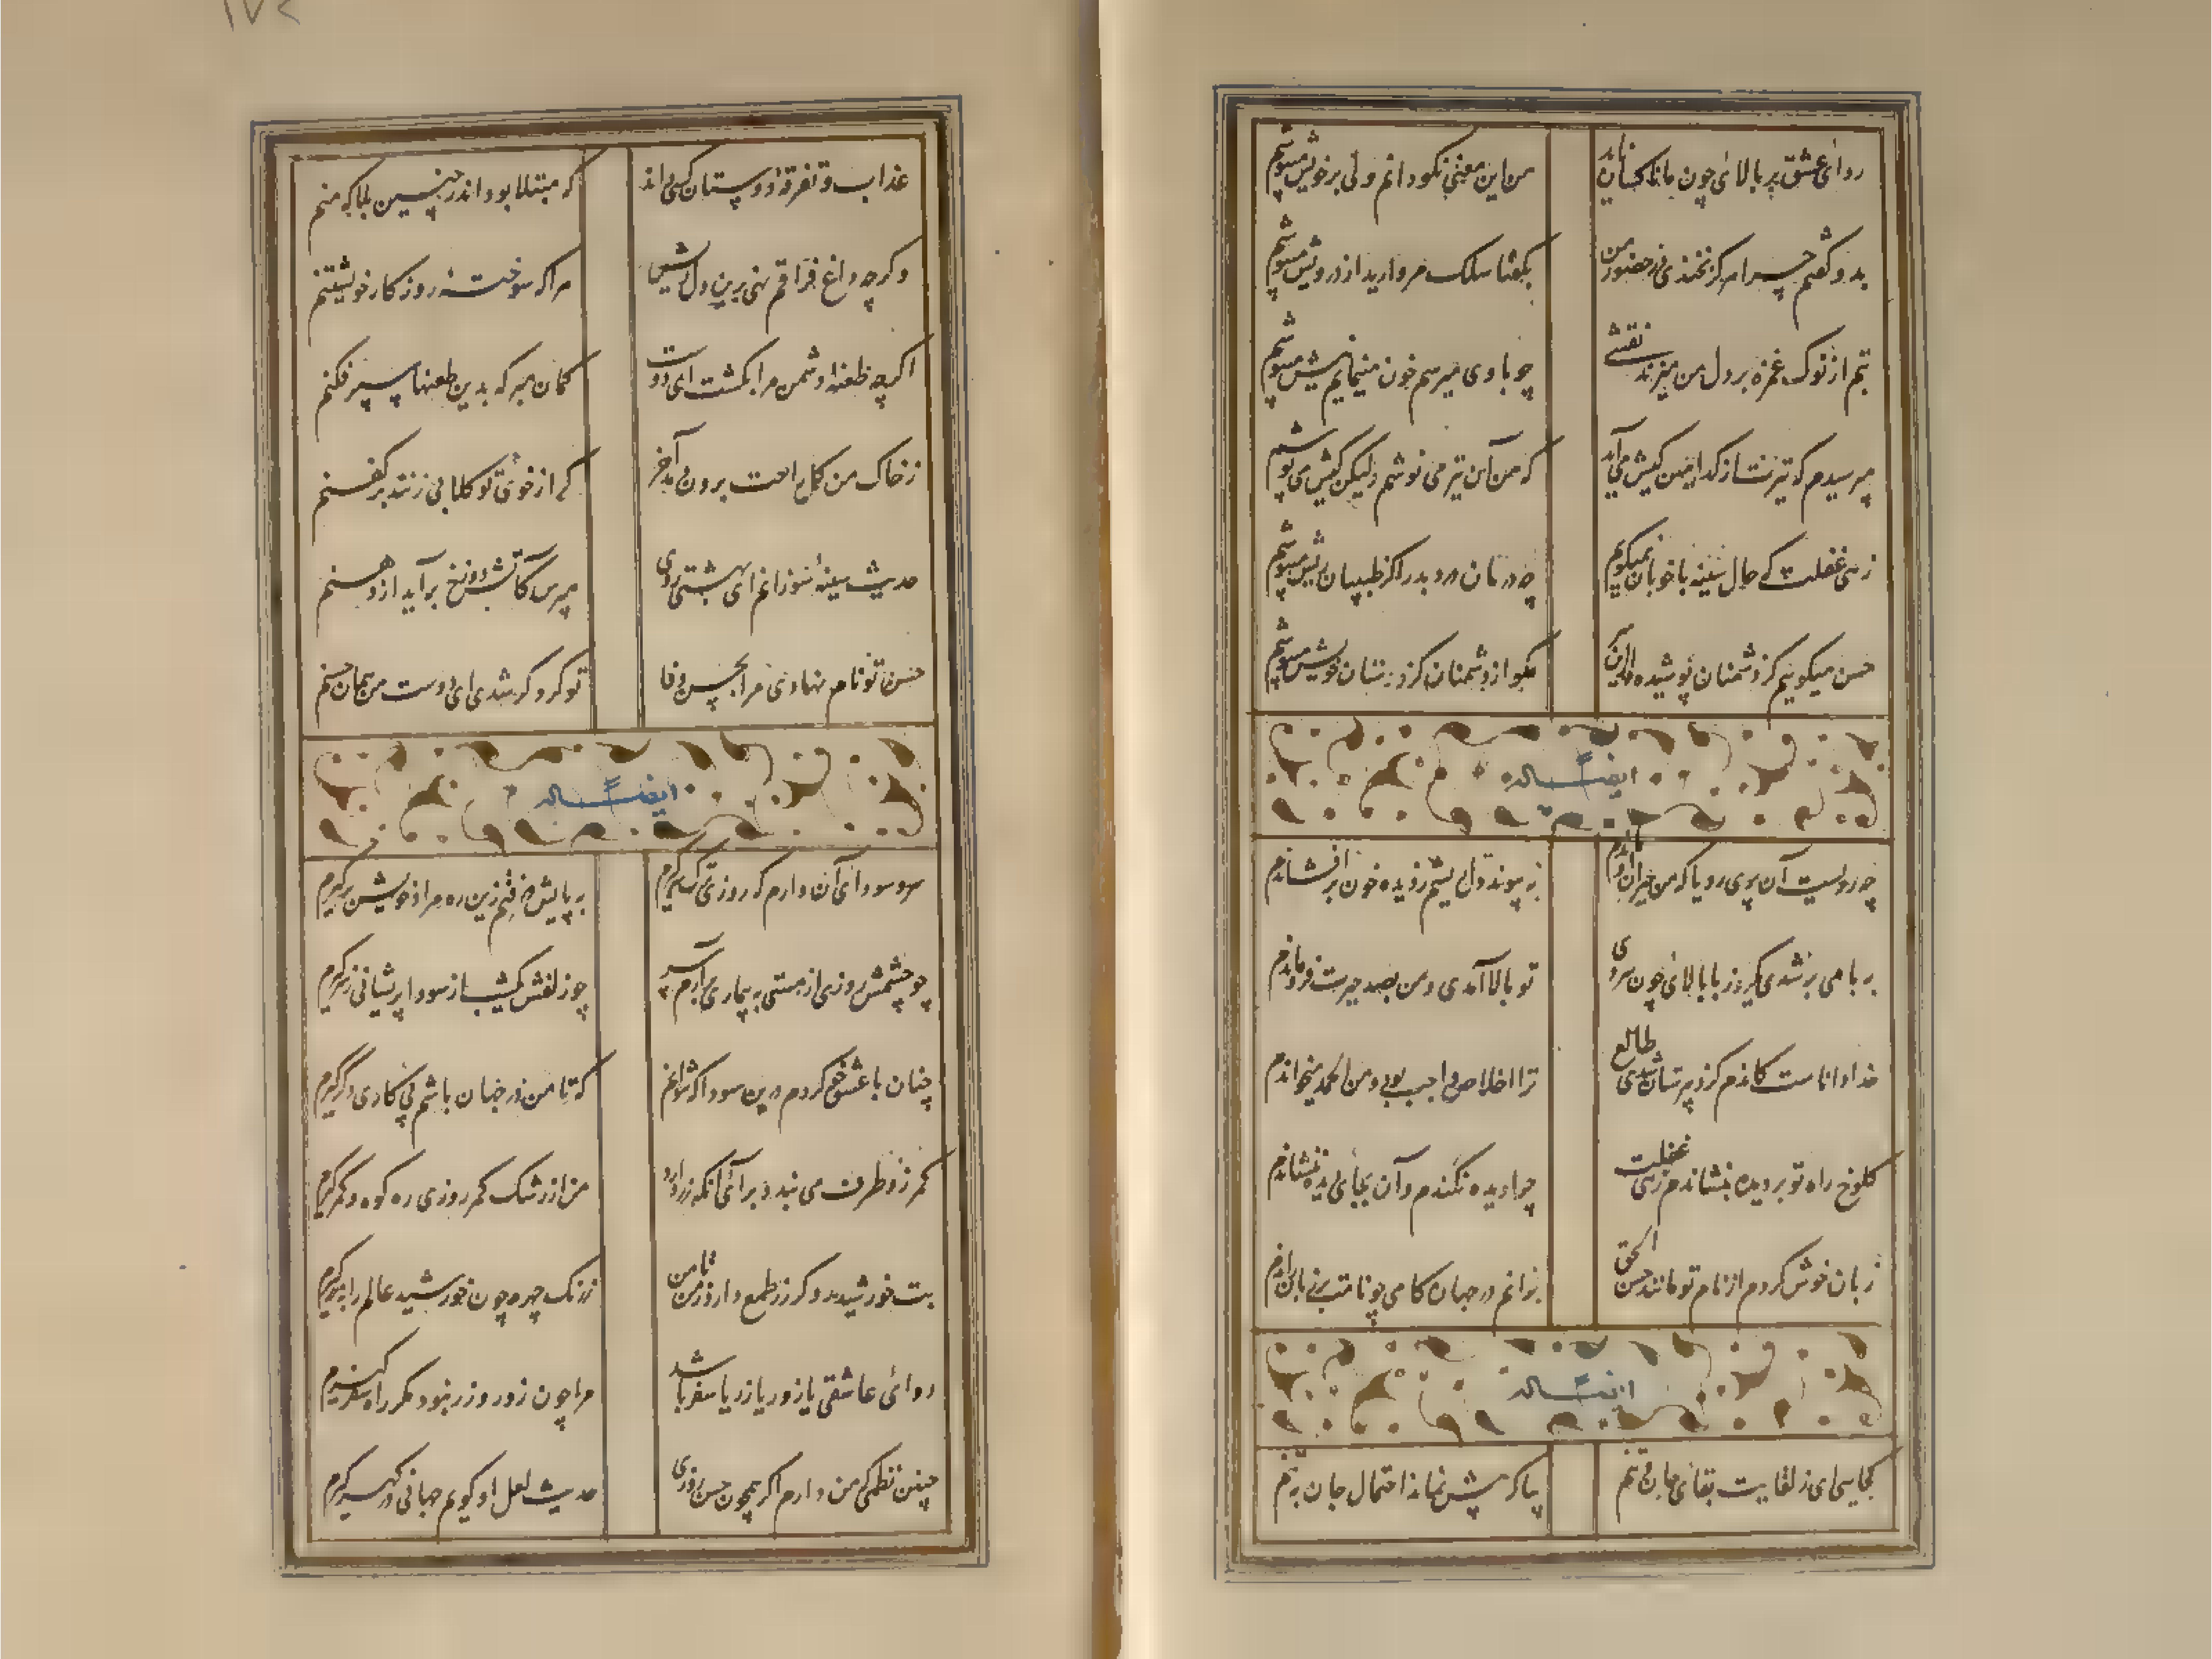 ردای عشق بر بالای چون مانا کسان باید من این معنی نکو دانم ولی بر خویش میپوشم
بدو گفتم چرا هرگز نخندی در حضور من بگفتا سلک مروارید از درویش میپوشم
بتم از نوک غمزه بر دل من میزند نقشی چو با وی میرسم خون مینمایم ریش میپوشم
بپرسیدم که تیرت از کدامین کیش می‌آید که من آن تیر می نوشم ولیکن کیش می پوشم
زهی غفلت که حال سینه با خوبان نمیگویم چه درمان درد بد را کز طبیبان ریش میپوشم
حسن میگوییم کز دشمنان پوشیده دار این سر مگو از دشمنان کز دوستان خویش میپوشم
ایضاً له
چه رویست آن پری رو یا که من حیران او ماندم به پیوند دل ریشم ز دیده خون برافشاندم
به بامی بر شدی یک روز با بالای چون سروی تو بالا آمدی و من بصد حیرت فرو ماندم
خدا داناست کاندم کز در پرتشان شدی طالع ترا اخلاص واجب بود و من الحمد میخواندم
کلوخ راه تو بر دیده ننشاندم زهی غفلت چرا دیده نکندم و آن بجای دیده ننشاندم
زبان خوش کردم از نام تو مانند حسن الحق نرانم در جهان کامی چو نامت بر زبان راندم
ایضاً له
کجایی ای ز لقایت بقای جان و تنم بیا که پیش نماند احتمال جان بدنم
۱۷۲
عذاب و تفرقه دوستان کسی داند که مبتلا بود اندر چنین بلا که منم
و گر چه داغ فراقم نهی برین دل ریش مرا که سوخته روزگار خویشتنم
اگر چه طعنه دشمن مرا بکشت ای دوست گمان مبر که بدین طعنها سپر فکنم
ز خاک من گل راحت برون دمد آخر که از خوی تو گلابی زنند بر کفنم
حدیث سینه سوزانم ای بهشتی روی مپرس کآتش دوزخ برآید از دهنم
حسن تو نام نهادی مرا بحسن وفا تو گر دگر شدی ای دوست من همان حسنم
ایضاً له
سر و سودای آن دارم که روزی ترک سر گیرم به پایش در فتم زین ره مراد خویش برگیرم
چو چشمش روزی از مستی به بیماری برآرم سر چو زلفش یک شب از سودا پریشانی ز سر گیرم
چنان با عشق خو کردم درین سودا که نتوانم که تا من در جهان باشم پی کاری دگر گیرم
کمر زو طرف می بندد برای آنکه زر دارد من از رشک کمر روزی ره کوه و کمر گیرم
بت خورشید رو گر زر طمع دارد ز من نامن ز رنگ چهره چون خورشید عالم را به زر گیرم
روای عاشقی یا زور یا زر یا سفر باشد مرا چون زور و زر نبود مگر راه سفر گیرم
چنین نظمی که من دارم اگر همچون حسن روزی حدیث لعل او گویم جهانی در گهر گیرم